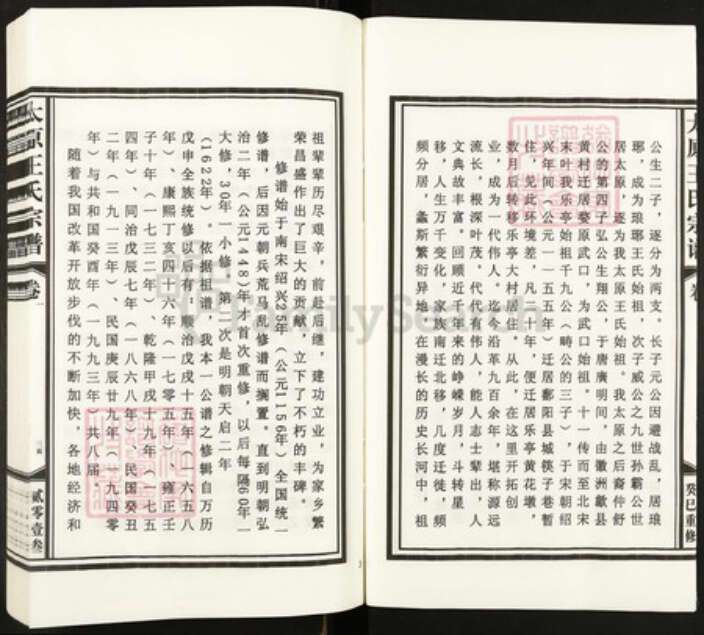 公生二子，逐分为两支。长子元公因避战乱，居琅
琊，成为琅琊王氏始祖，次子威公之九世孙霸公世
居太原，逐为我太原王氏始祖。我太原之后裔仲舒
公的第四子弘公生翔公，于唐广明间，由徽洲歙县
黄村迁居婺原武口，为武口始祖。十一传而至北宋
末叶我乐亭始祖千九公（畴公的三子），于宋朝绍
兴年间（公元一一五五年）迁居鄱阳县城筷子巷暂
住，见此环境差，凡二十年，便迁居乐亭黄花墩，
数月后转移乐亭大村居住。从此，在这里开拓创
业，成为一代伟人。迄今沿革九百余年，堪称源远
流长，根深叶茂。代代有伟人，能人志士辈出，人
文典故丰富。回顾近千年来的峥嵘岁月，斗转星
移，人生万千变化，家族南迁北移，几度迁徙，频
频分居，螽斯繁衍异地。在漫长的历史长河中，祖
癸巳重修
祖辈辈历尽艰辛，前赴后继，建功立业，为家乡繁
荣昌盛作出了巨大的贡献，立下了不朽的丰碑。
修谱始于南宋绍兴25年（公元1156年）全国统一
修谱，后因元朝兵荒马乱修谱而搁置。直到明朝弘
治二年（公元1448）年才首次重修，以后每隔60年一
大修，30年一小修。第一次是明朝天启二年
(1622年)。依据祖谱，我本一公谱之修辑自万历
戊申全族统修以后有：顺治戊戌十五年（一六五八
年）、康熙丁亥四十六年（一七〇五年）、雍正壬
子十年（一七三二年）、乾隆甲戌十九年（一七五
四年）、同治戊辰七年（一八六八年）民国癸丑
二年（一九一三年）、民国庚辰廿九年（一九四零
年）与共和国癸酉年（一九九三年）共八届。
随着我国改革开放步伐的不断加快，各地经济和
太原王氏宗谱
卷
贰零壹叁
FamilySearch